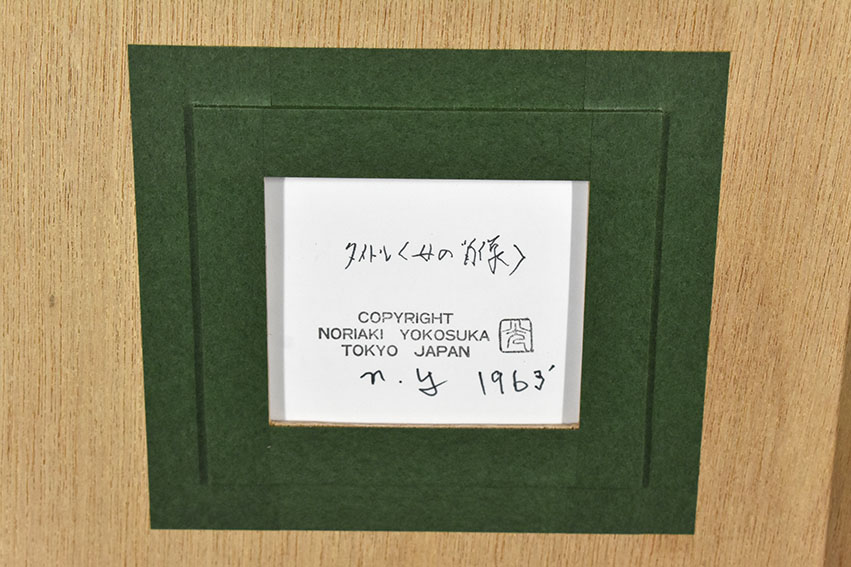 タイトル〈母の肖像〉
COPYRIGHT
NORIAKI YOKOSUKA
TOKYO JAPAN
n.y 1963'